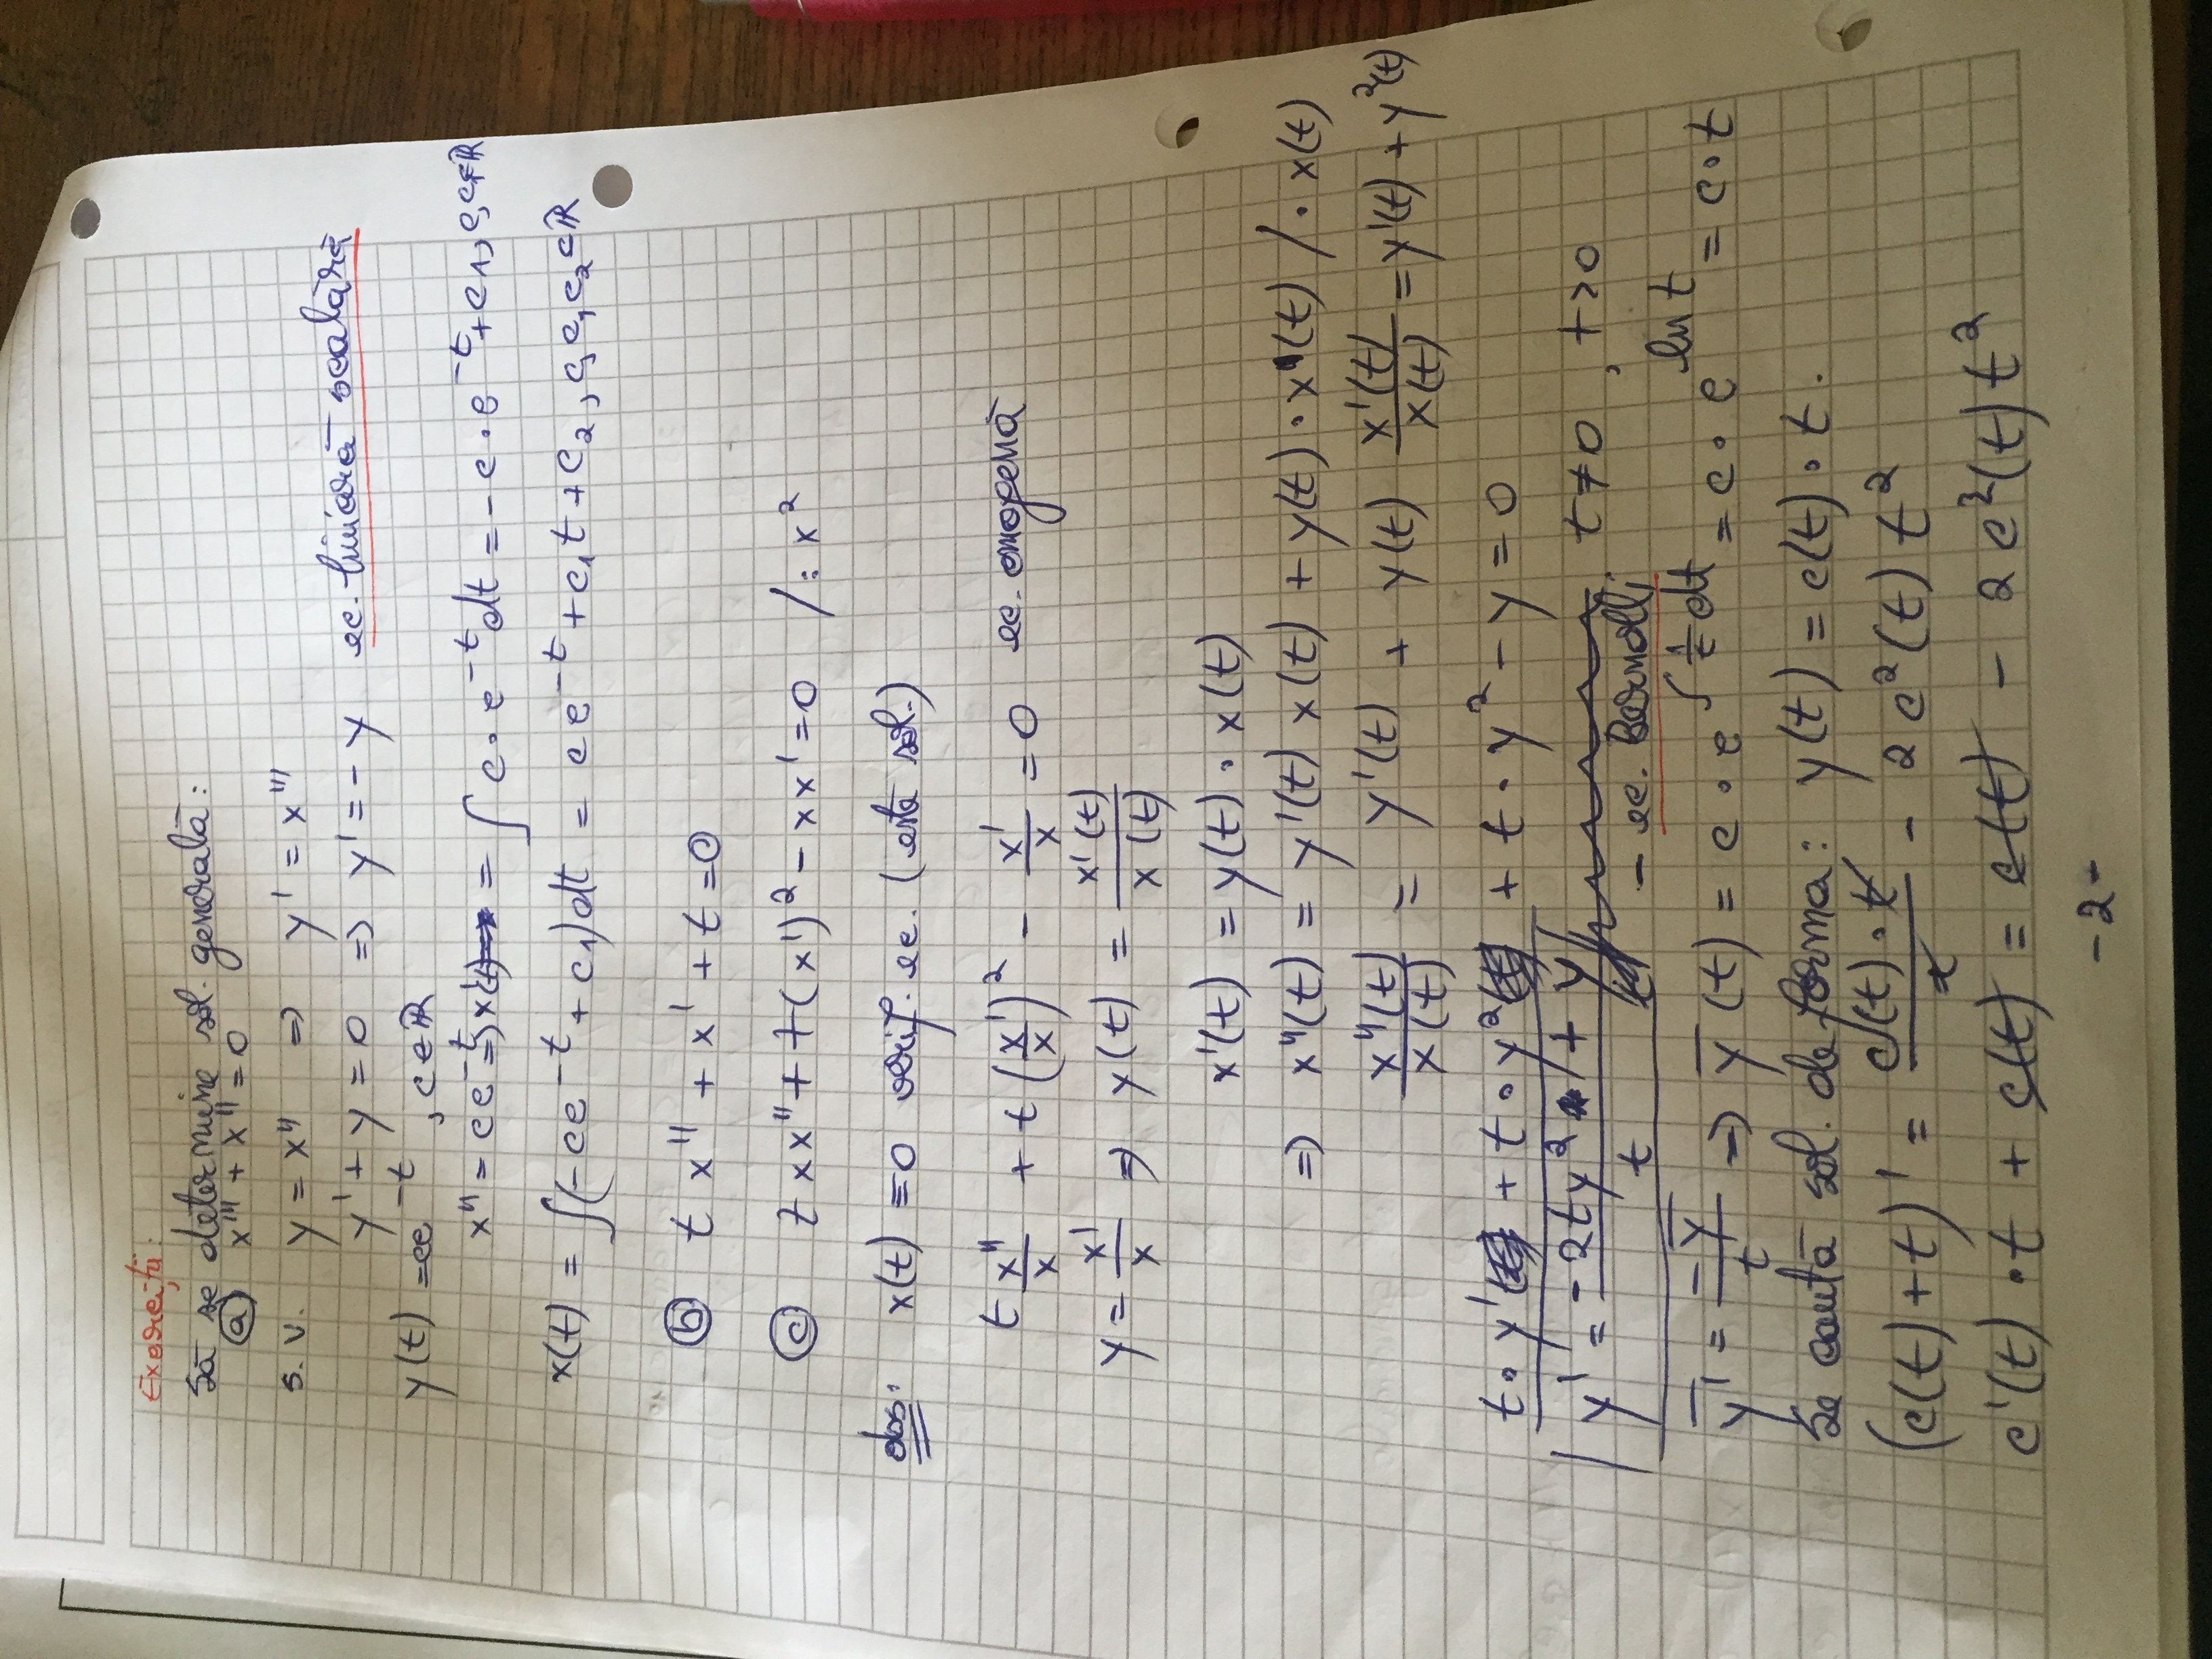 Exerciții:
Să se determine sol. generală:
(a) x''' + x'' = 0
s.v. y = x'' => y' = x'''
y' + y = 0 => y' = -y ec. liniară scalară
y(t) = ce^{-t}, c∈ℝ
x'' = ce^{-t} => x'(t) = ∫ c·e^{-t} dt = -c·e^{-t} + c₁, c, c₁∈ℝ
x(t) = ∫(-ce^{-t} + c₁)dt = ce^{-t} + c₁t + c₂, c, c₁, c₂∈ℝ
(b) t x'' + x' + t = 0
(c) t x x'' + t(x')² - x x' = 0 /: x²
obs: x(t) ≡ 0 verif. ec. (este sol.)
t x''/x + t (x'/x)² - x'/x = 0 ec. omogenă
y = x'/x => y(t) = x'(t)/x(t)
x'(t) = y(t) · x(t)
=> x''(t) = y'(t) x(t) + y(t) · x'(t) / · x(t)
x''(t)/x(t) = y'(t) + y(t) x'(t)/x(t) = y'(t) + y²(t)
t · y' + t · y² + t · y² - y = 0
y' = (-2ty² + y)/t t ≠ 0, t > 0
- ec. Bernolli
ȳ' = -ȳ/t => ȳ(t) = c · e^{∫ 1/t dt} = c · e^{ln t} = c · t
Se caută sol. de forma: y(t) = c(t) · t.
(c(t) + t)' = c(t) · t/t - 2c²(t) t²
c'(t) · t + c(t) = c(t) - 2c²(t) t²
- 2 -